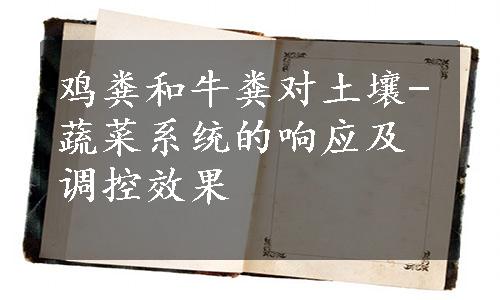 鸡粪和牛粪对土壤-
蔬菜系统的响应及
调控效果